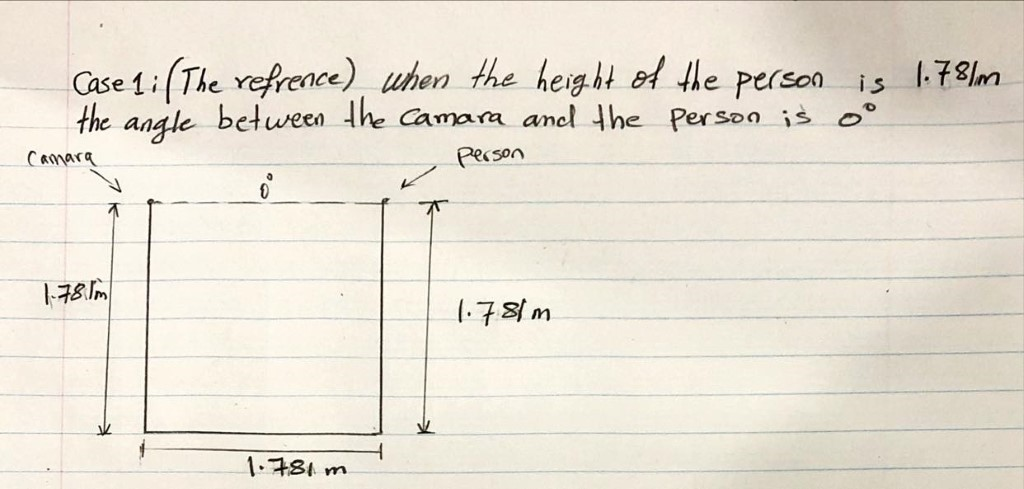 Case 1: (The refrence) when the height of the person is 1.781m
the angle between the Camara and the Person is 0°
Camara
person
0°
1.781m
1.781m
1.781 m